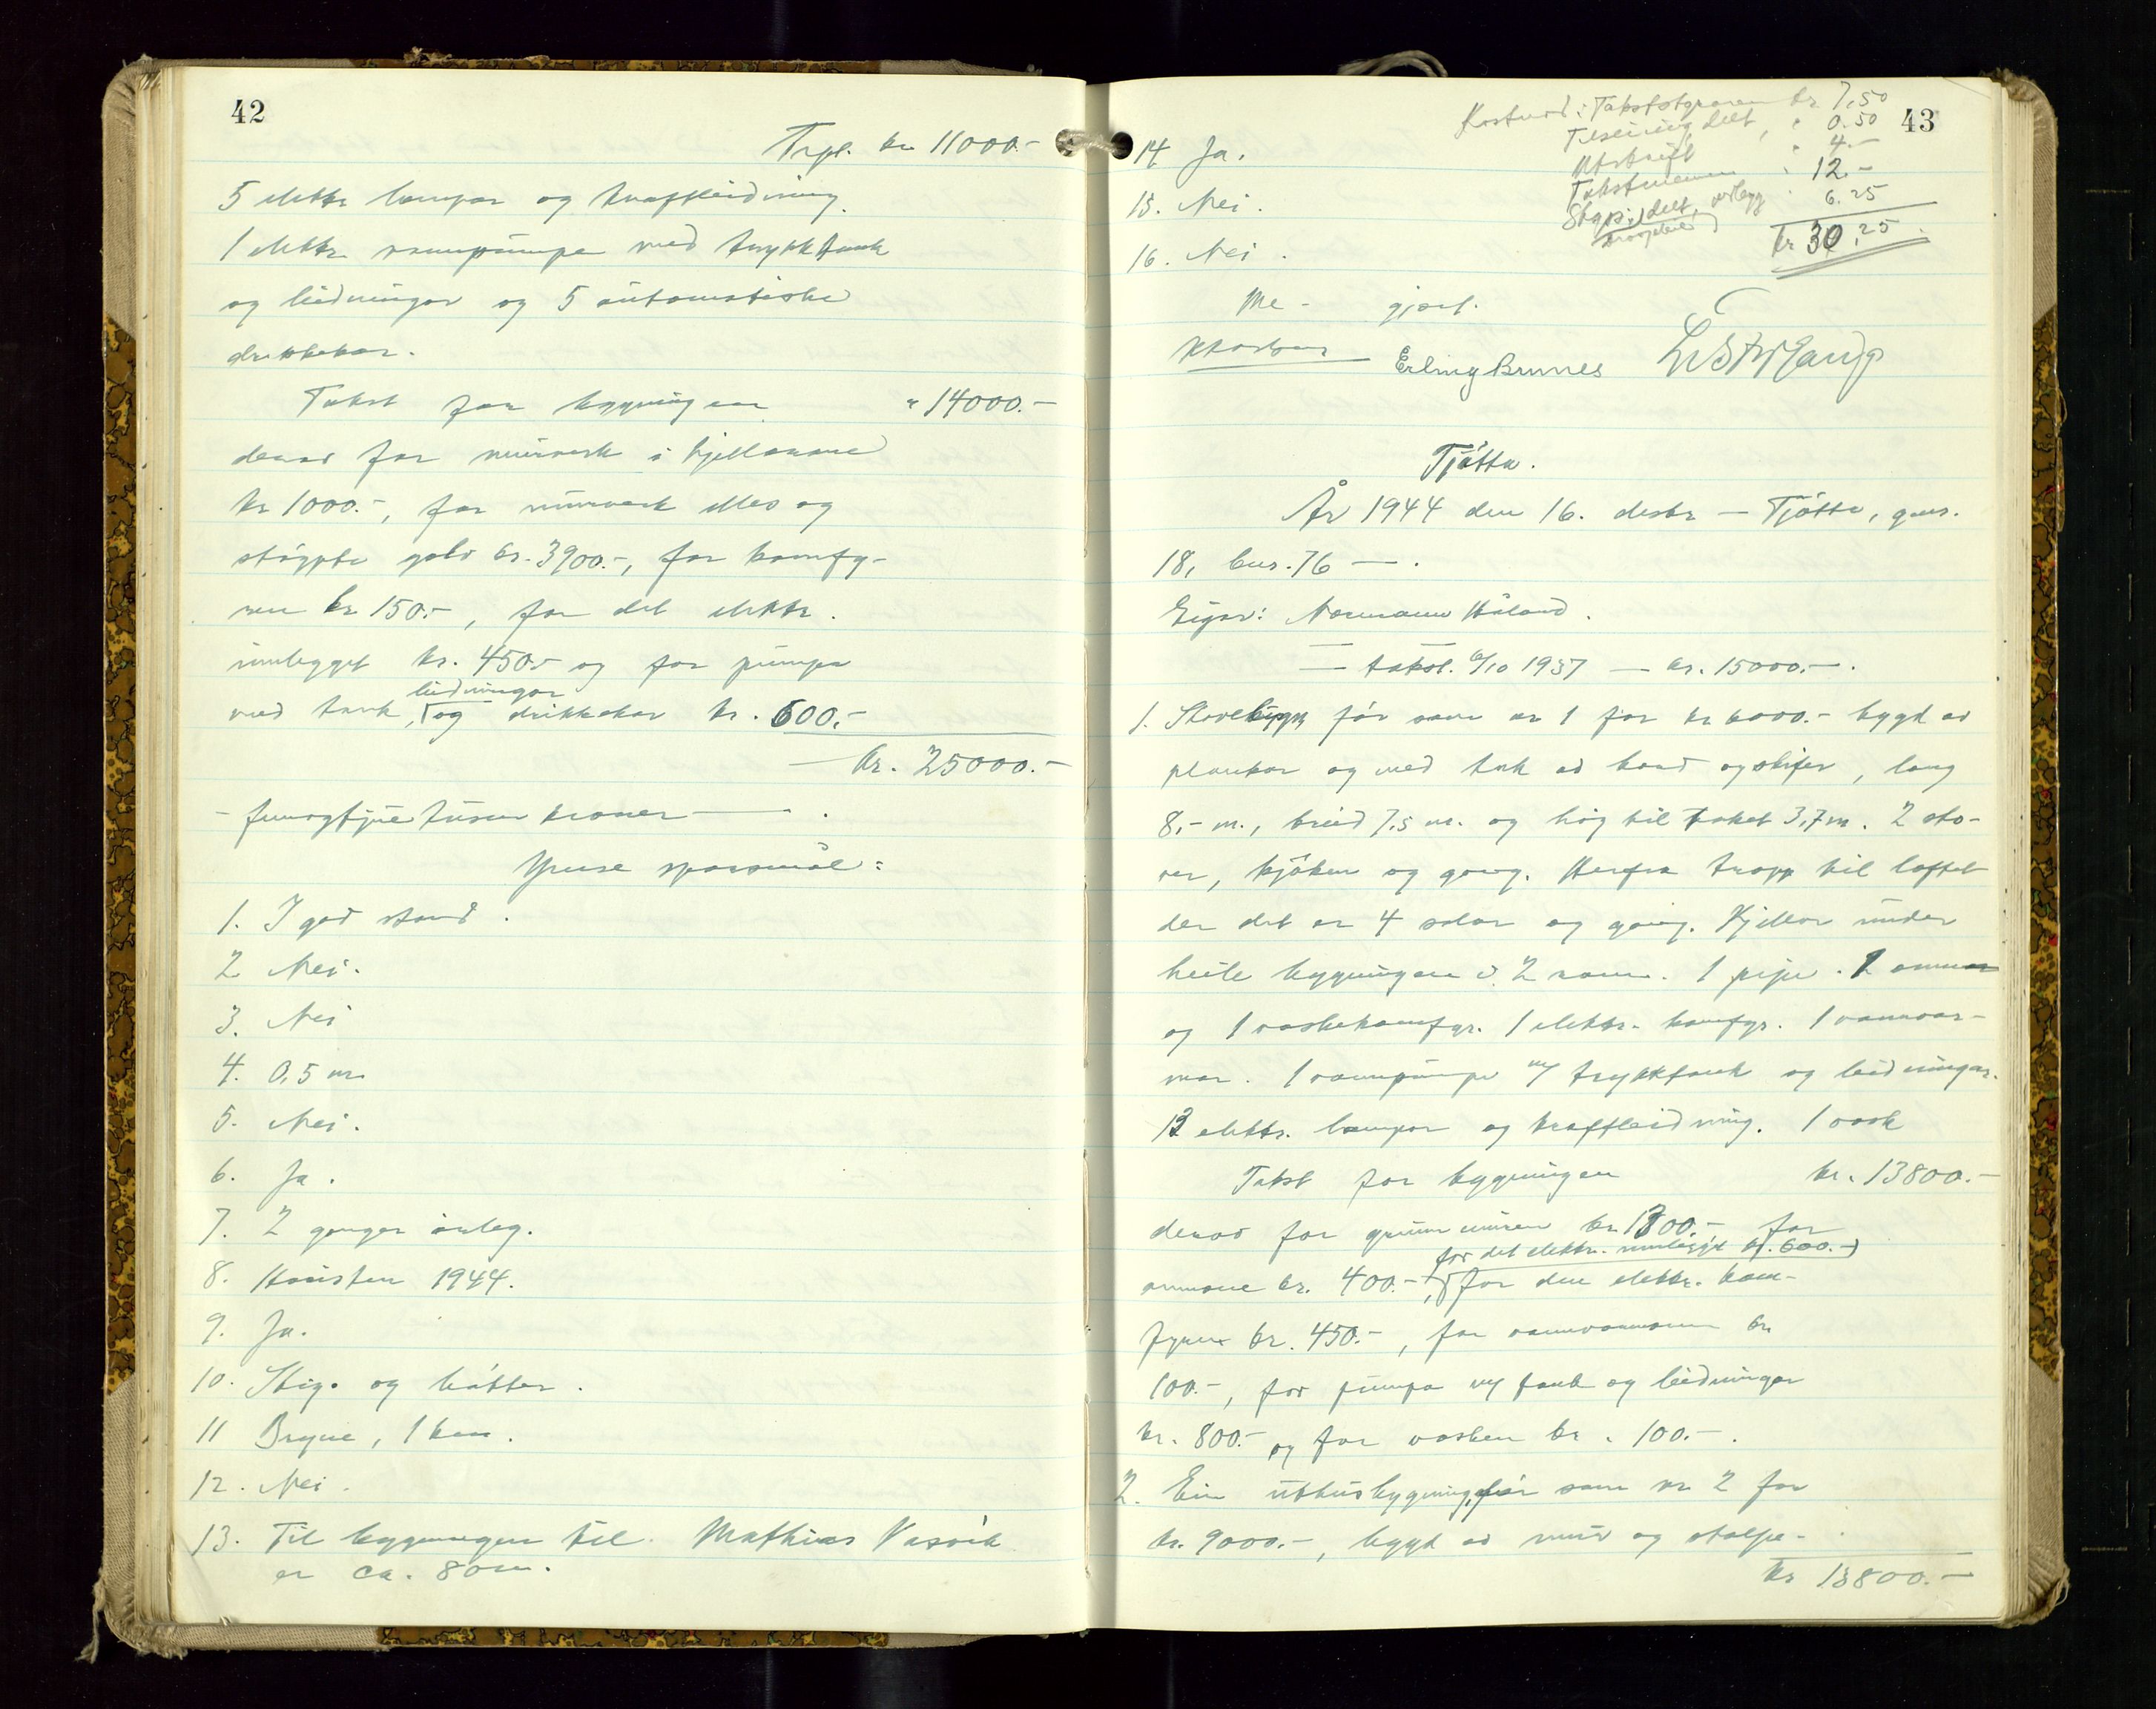 42
Trpt. kr 11000.-
5 elektr lampor og kraftleidning.
1 elektr vannpumpe med trykktank
og leidningar og 5 automatiske
drikkekar.
Takst for bygningen " 14000.-
derav for murverk i kjellarane
kr 1000.-, for murverk elles og
støypte golv kr. 3900.-, for komfy-
ren kr 150.-, for det elektr.
innlegget kr. 450.- og for pumpa
leidningar
med tank, og drikkekar kr. 600.-
kr. 25000.-
- femogtjue tusen kroner -
Ymse spørsmål:
1. I god stand.
2 Nei.
3. Nei
4. 0,5 m
5. Nei.
6. Ja.
7. 2 gonger årleg.
8. Hausten 1944.
9. Ja.
10. Stig. og bøtter.
11 Bryne, 1 km.
12. Nei.
13. Til bygningen til Mathias Vasvik
er ca. 80 m.
43
Kostnad: Takstutgreien kr 7,50
Tilseiing, delt, " 0.50
Utskrift " 4.-
Takstmennene " 12.-
Skyss, delt, vedlegg " 6.25
kr 30,25
14 Ja.
15. Nei.
16. Nei.
Me - gjort.
Erling Brunes
Tjøtta.
År 1944 den 16. desbr - Tjøtta, gnr.
18, bnr. 76 - .
Eigar: Normann Håland.
- takst. 6/10 1937 - kr. 15000.- .
1. Stovebygn før som nr 1 for kr 6000.- bygd av
plankar og med tak av bord og skifer, lang
8,- m., breid 7,5 m. og høg til taket 3,7 m. 2 sto-
ver, kjøken og gang. Herfra trapp til loftet
der det er 4 salar og gang. Kjellar under
heile bygningen i 2 rom. 1 pipe. 2 omnar
og 1 vaskekomfyr. 1 elektr. komfyr. 1 vannvar-
mar. 1 vannpumpe m/ trykktank og leidningar.
13 elektr. lampor og kraftleidning. 1 vask
Takst for bygningen kr. 13800.-
derav for grunnmuren kr. 1800.- for
for det elektr. innlegget kr. 600.-
omnane kr. 400.-, for den elektr. kom-
fyren kr. 450.-, for vannvarmaren kr
100.-, for pumpa m/ tank og leidningar
kr. 800.- og for vasken kr. 100.-.
2. Ein uthusbygning, før som nr 2 for
kr. 9000.-, bygd av mur og stolpe-
kr 13800.-